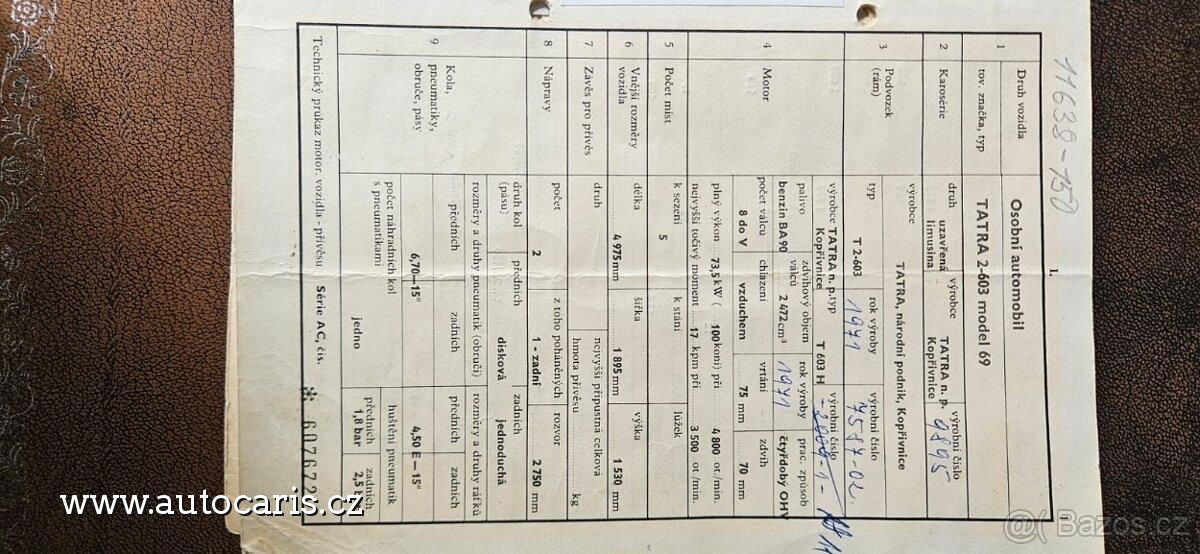 11638-150
I.
1
Druh vozidla
Osobní automobil
tov. značka, typ
TATRA 2-603 model 69
2
Karosérie
druh
uzavřená limusina
výrobce
TATRA n. p. Kopřivnice
výrobní číslo
9895
3
Podvozek (rám)
výrobce
TATRA, národní podnik, Kopřivnice
typ
T 2-603
rok výroby
1971
výrobní číslo
7587-02
4
Motor
výrobce TATRA n. p. Kopřivnice
typ
T 603 H
výrobní číslo
palivo
benzin BA 90
zdvihový objem válců
2 472 cm³
rok výroby
1971
prac. způsob
čtyřdobý OHV
počet válců
8 do V
chlazení
vzduchem
vrtání
75 mm
zdvih
70 mm
plný výkon 73,5 kW ( 100 koní) při 4 800 ot./min.
nejvyšší točivý moment 17 kpm při 3 500 ot./min.
5
Počet míst
k sezení
5
k stání
lůžek
6
Vnější rozměry vozidla
délka
4 975 mm
šířka
1 895 mm
výška
1 530 mm
7
Závěs pro přívěs
druh
nejvyšší přípustná celková hmota přívěsu kg
8
Nápravy
počet
2
z toho poháněných
1 - zadní
rozvor
2 750 mm
9
Kola, pneumatiky, obruče, pásy
druh kol (pásu)
předních
disková
zadních
jednoduchá
rozměry a druhy pneumatik (obručí)
rozměry a druhy ráfků
předních
zadních
předních
zadních
6,70—15"
4,50 E—15"
počet náhradních kol s pneumatikami
jedno
huštění pneumatik
předních
1,8 bar
zadních
2,5
Technický průkaz motor. vozidla - přívěsu Série AC, čís. * 607672
www.autocaris.cz
@( Bazos.cz